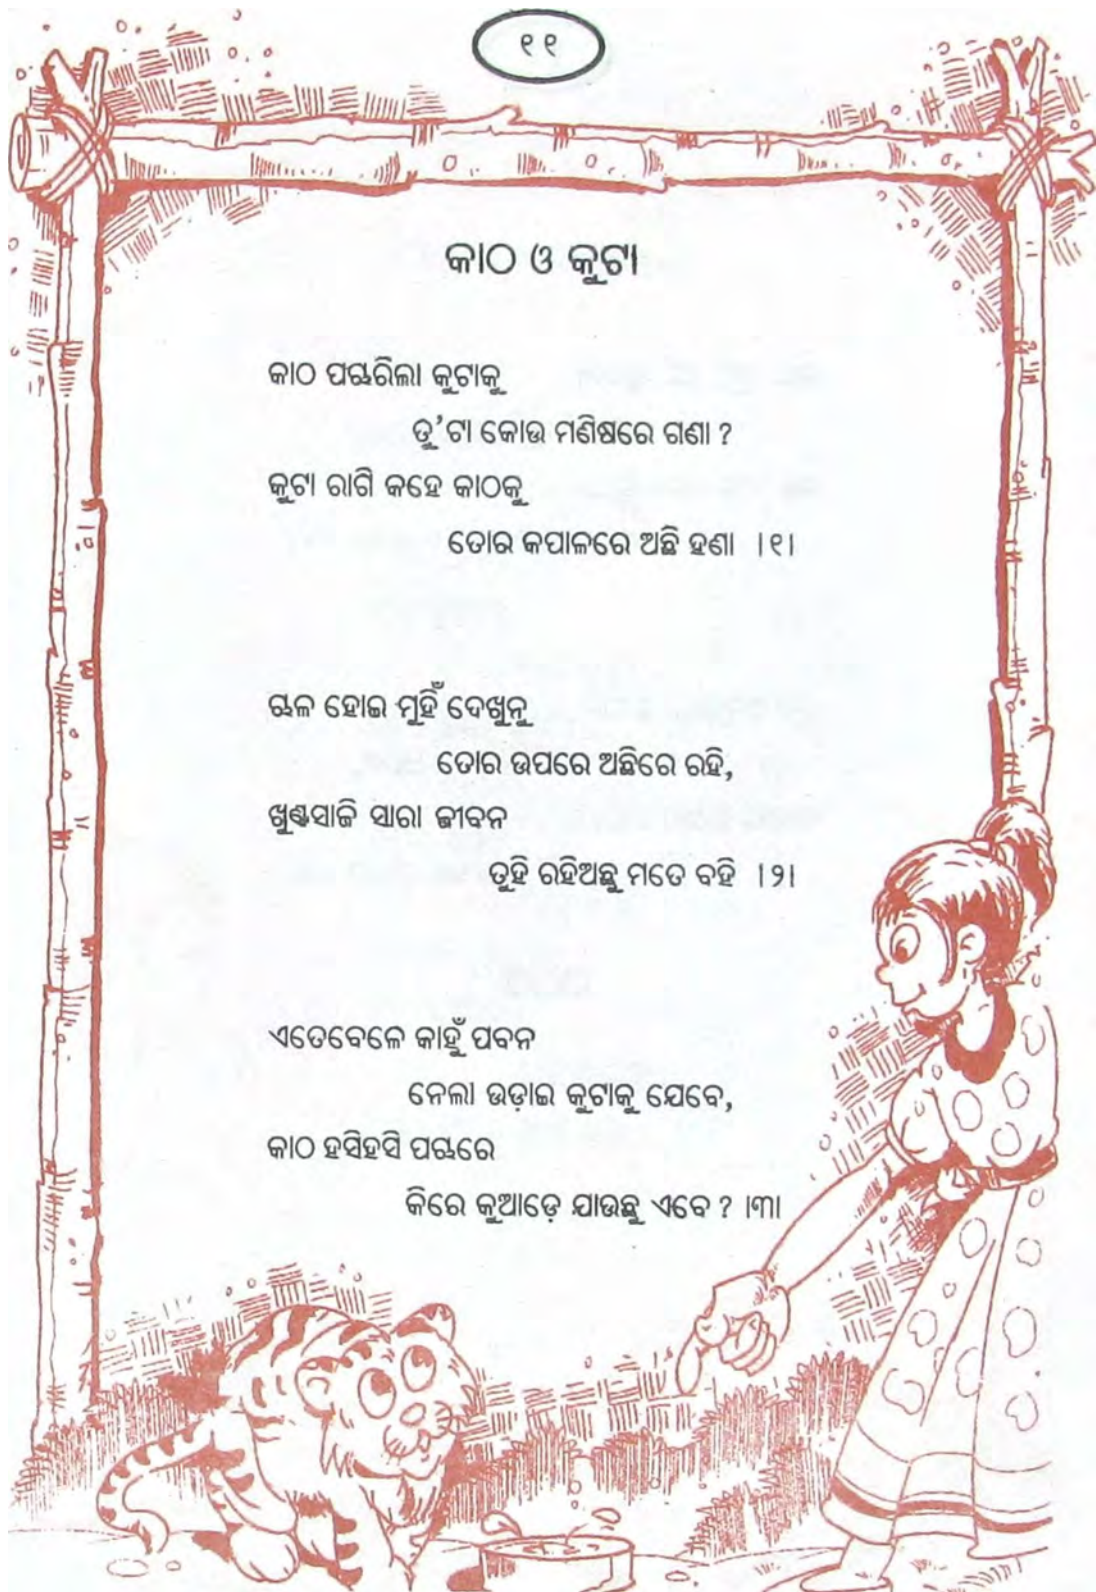 ୧୧
କାଠ ଓ କୁଟା
କାଠ ପଚ୍ଚାରିଲା କୁଟାକୁ
ତୁ'ଟା କୋଉ ମଣିଷରେ ଗଣା ?
କୁଟା ରାଗି କହେ କାଠକୁ
ତୋର କପାଳରେ ଅଛି ହଣା ।୧।
ଚାଳ ହୋଇ ମୁହିଁ ଦେଖୁନୁ
ତୋର ଉପରେ ଅଛିରେ ରହି,
ଖୁଣ୍ଟସାଜି ସାରା ଜୀବନ
ତୁହି ରହିଅଛୁ ମତେ ବହି ।୨।
ଏତେବେଳେ କାହୁଁ ପବନ
ନେଲା ଉଡ଼ାଇ କୁଟାକୁ ଯେବେ,
କାଠ ହସିହସି ପଚାରେ
କିରେ କୁଆଡ଼େ ଯାଉଛୁ ଏବେ ? ।୩।